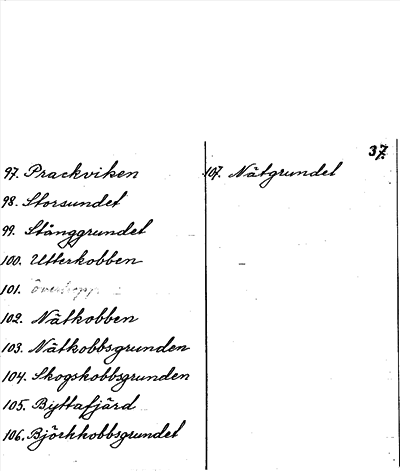 37.
97. Prackviken
98. Storsundet
99. Stånggrundet
100. Utterkobben
101.
102. Nätkobben
103. Nätkobbsgrunden
104. Skogskobbsgrunden
105. Byttafjärd
106. Björkkobbsgrundet
107. Nätgrundet